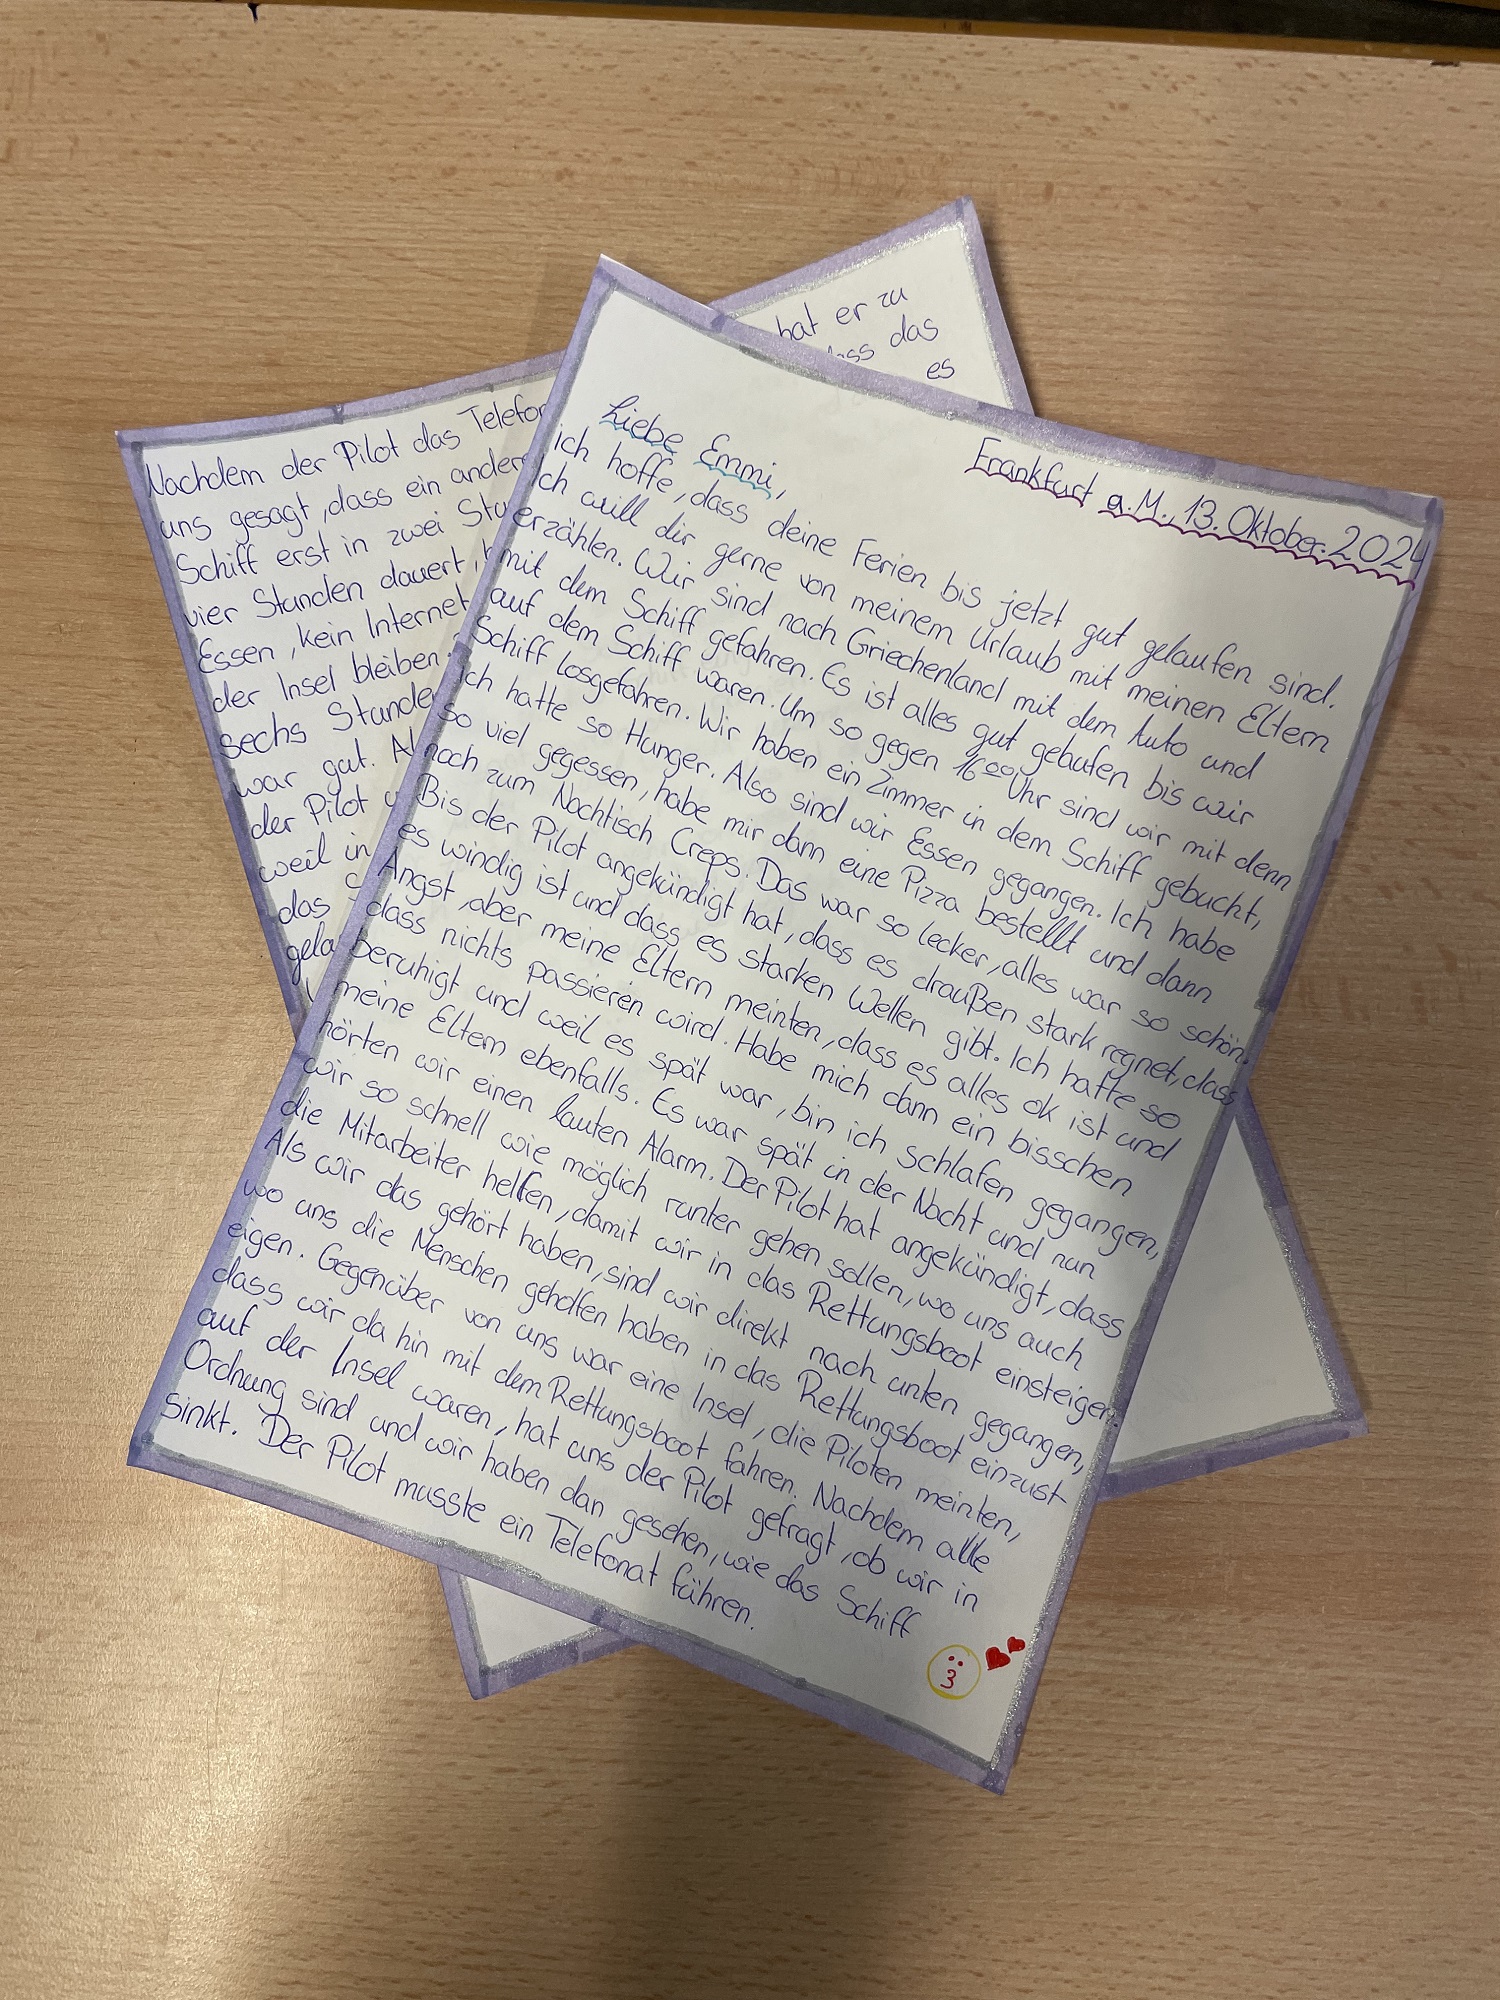 Frankfurt a.M., 13. Oktober. 2024
Liebe Emmi,
ich hoffe, dass deine Ferien bis jetzt gut gelaufen sind.
Ich will dir gerne von meinem Urlaub mit meinen Eltern
erzählen. Wir sind nach Griechenland mit dem Auto und
mit dem Schiff gefahren. Es ist alles gut gelaufen bis wir
auf dem Schiff waren. Um so gegen 16⁰⁰ Uhr sind wir mit denn
Schiff losgefahren. Wir haben ein Zimmer in dem Schiff gebucht,
Ich hatte so Hunger. Also sind wir Essen gegangen. Ich habe
so viel gegessen, habe mir dann eine Pizza bestellt und dann
noch zum Nachtisch Creps. Das war so lecker, alles war so schön.
Bis der Pilot angekündigt hat, dass es draußen stark regnet, dass
es windig ist und dass es starken Wellen gibt. Ich hatte so
Angst, aber meine Eltern meinten, dass es alles ok ist und
dass nichts passieren wird. Habe mich dann ein bisschen
beruhigt und weil es spät war, bin ich schlafen gegangen,
meine Eltern ebenfalls. Es war spät in der Nacht und nun
hörten wir einen lauten Alarm. Der Pilot hat angekündigt, dass
wir so schnell wie möglich runter gehen sollen, wo uns auch
die Mitarbeiter helfen, damit wir in das Rettungsboot einsteigen.
Als wir das gehört haben, sind wir direkt nach unten gegangen,
wo uns die Menschen geholfen haben in das Rettungsboot einzust
eigen. Gegenüber von uns war eine Insel, die Piloten meinten,
dass wir da hin mit dem Rettungsboot fahren. Nachdem alle
auf der Insel waren, hat uns der Pilot gefragt, ob wir in
Ordnung sind und wir haben dan gesehen, wie das Schiff
sinkt. Der Pilot musste ein Telefonat führen.
Nachdem der Pilot das Telefon
hat er zu
uns gesagt, dass ein ander
dass das
Schiff erst in zwei Stu
es
vier Stunden dauert,
Essen, kein Internet
der Insel bleiben
sechs Stunden
war gut. Al
der Pilot
weil in
das
gela